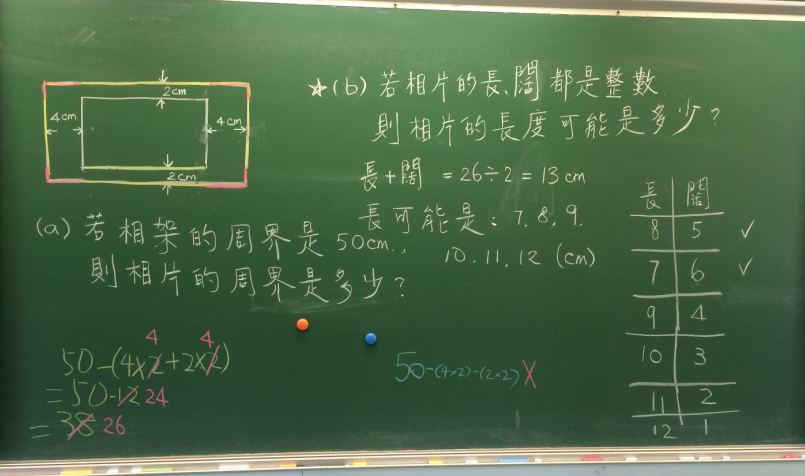 2cm
4cm
4cm
2cm
(a) 若相架的周界是50cm.,
則相片的周界是多少?
4 4
50-(4x2+2x2)
=50-12 24
=38 26
50-(4x2)-(2x2) X
★(b) 若相片的長、闊都是整數.
則相片的長度可能是多少?
長+闊 =26÷2=13cm
長可能是: 7.8.9.
10.11.12 (cm)
長 闊
8 5 ✓
7 6 ✓
9 4
10 3
11 2
12 1